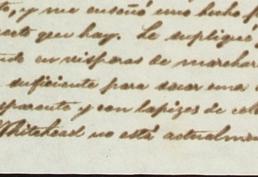 , y me enseñó uno hecho p
ecto que hay. Le supliqué y
en visperas de marchar
suficiente para sacar una c
sparente y con lapizes de col
Whitehead no está actualmen